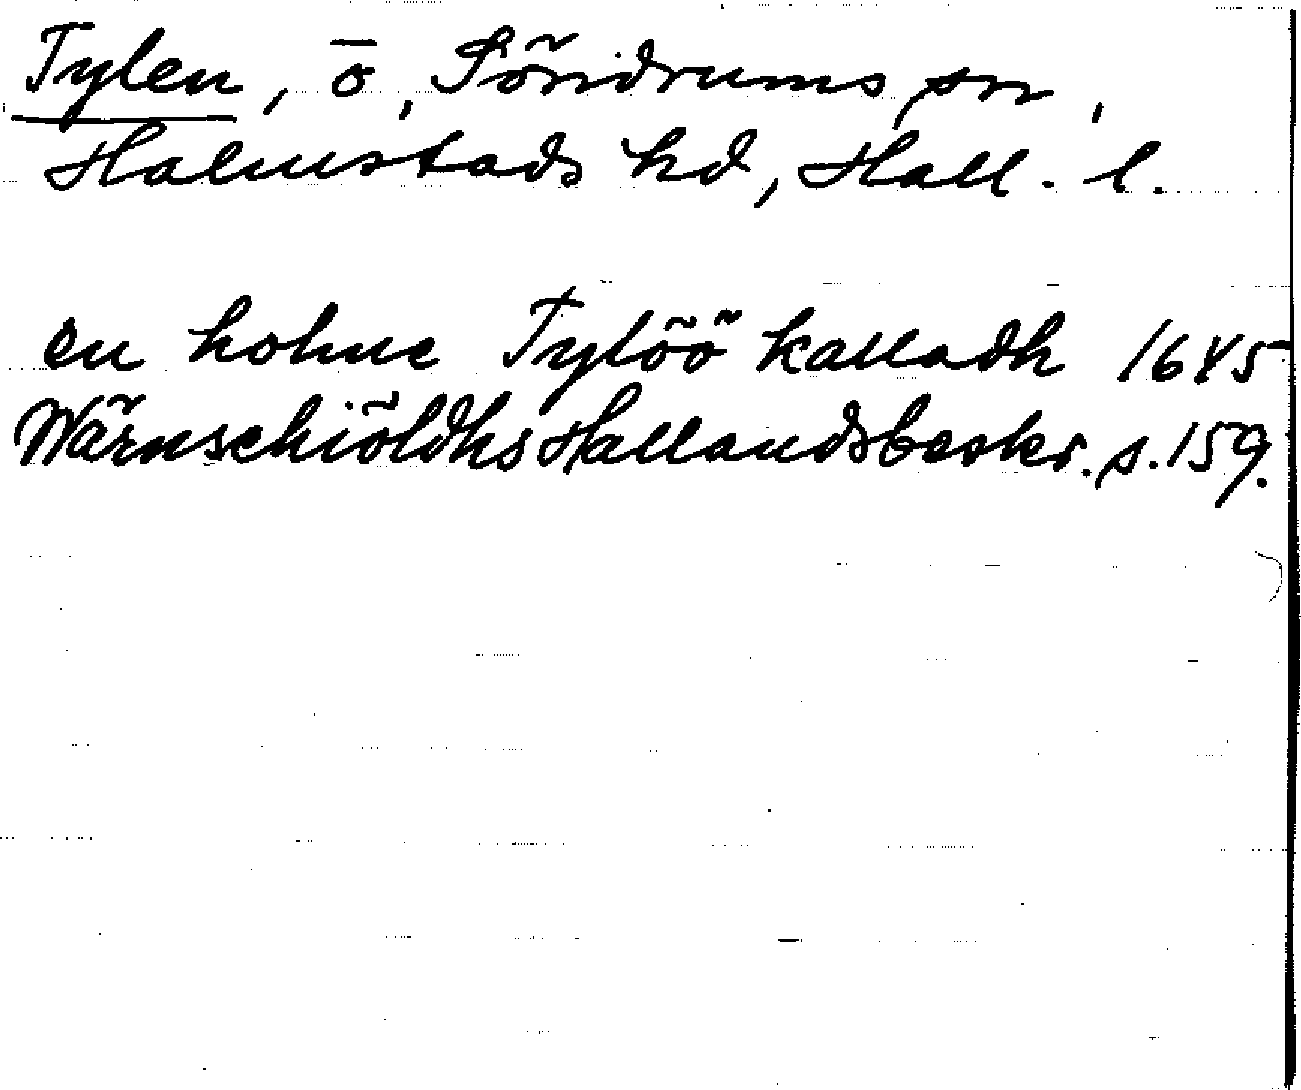 Tylen, ö, Söndrums sn,
Halmstads hd, Hall. l.
en holme Tylöö kalladh 1645
Wärnschiöldhs Hallandsbeskr. s. 159.